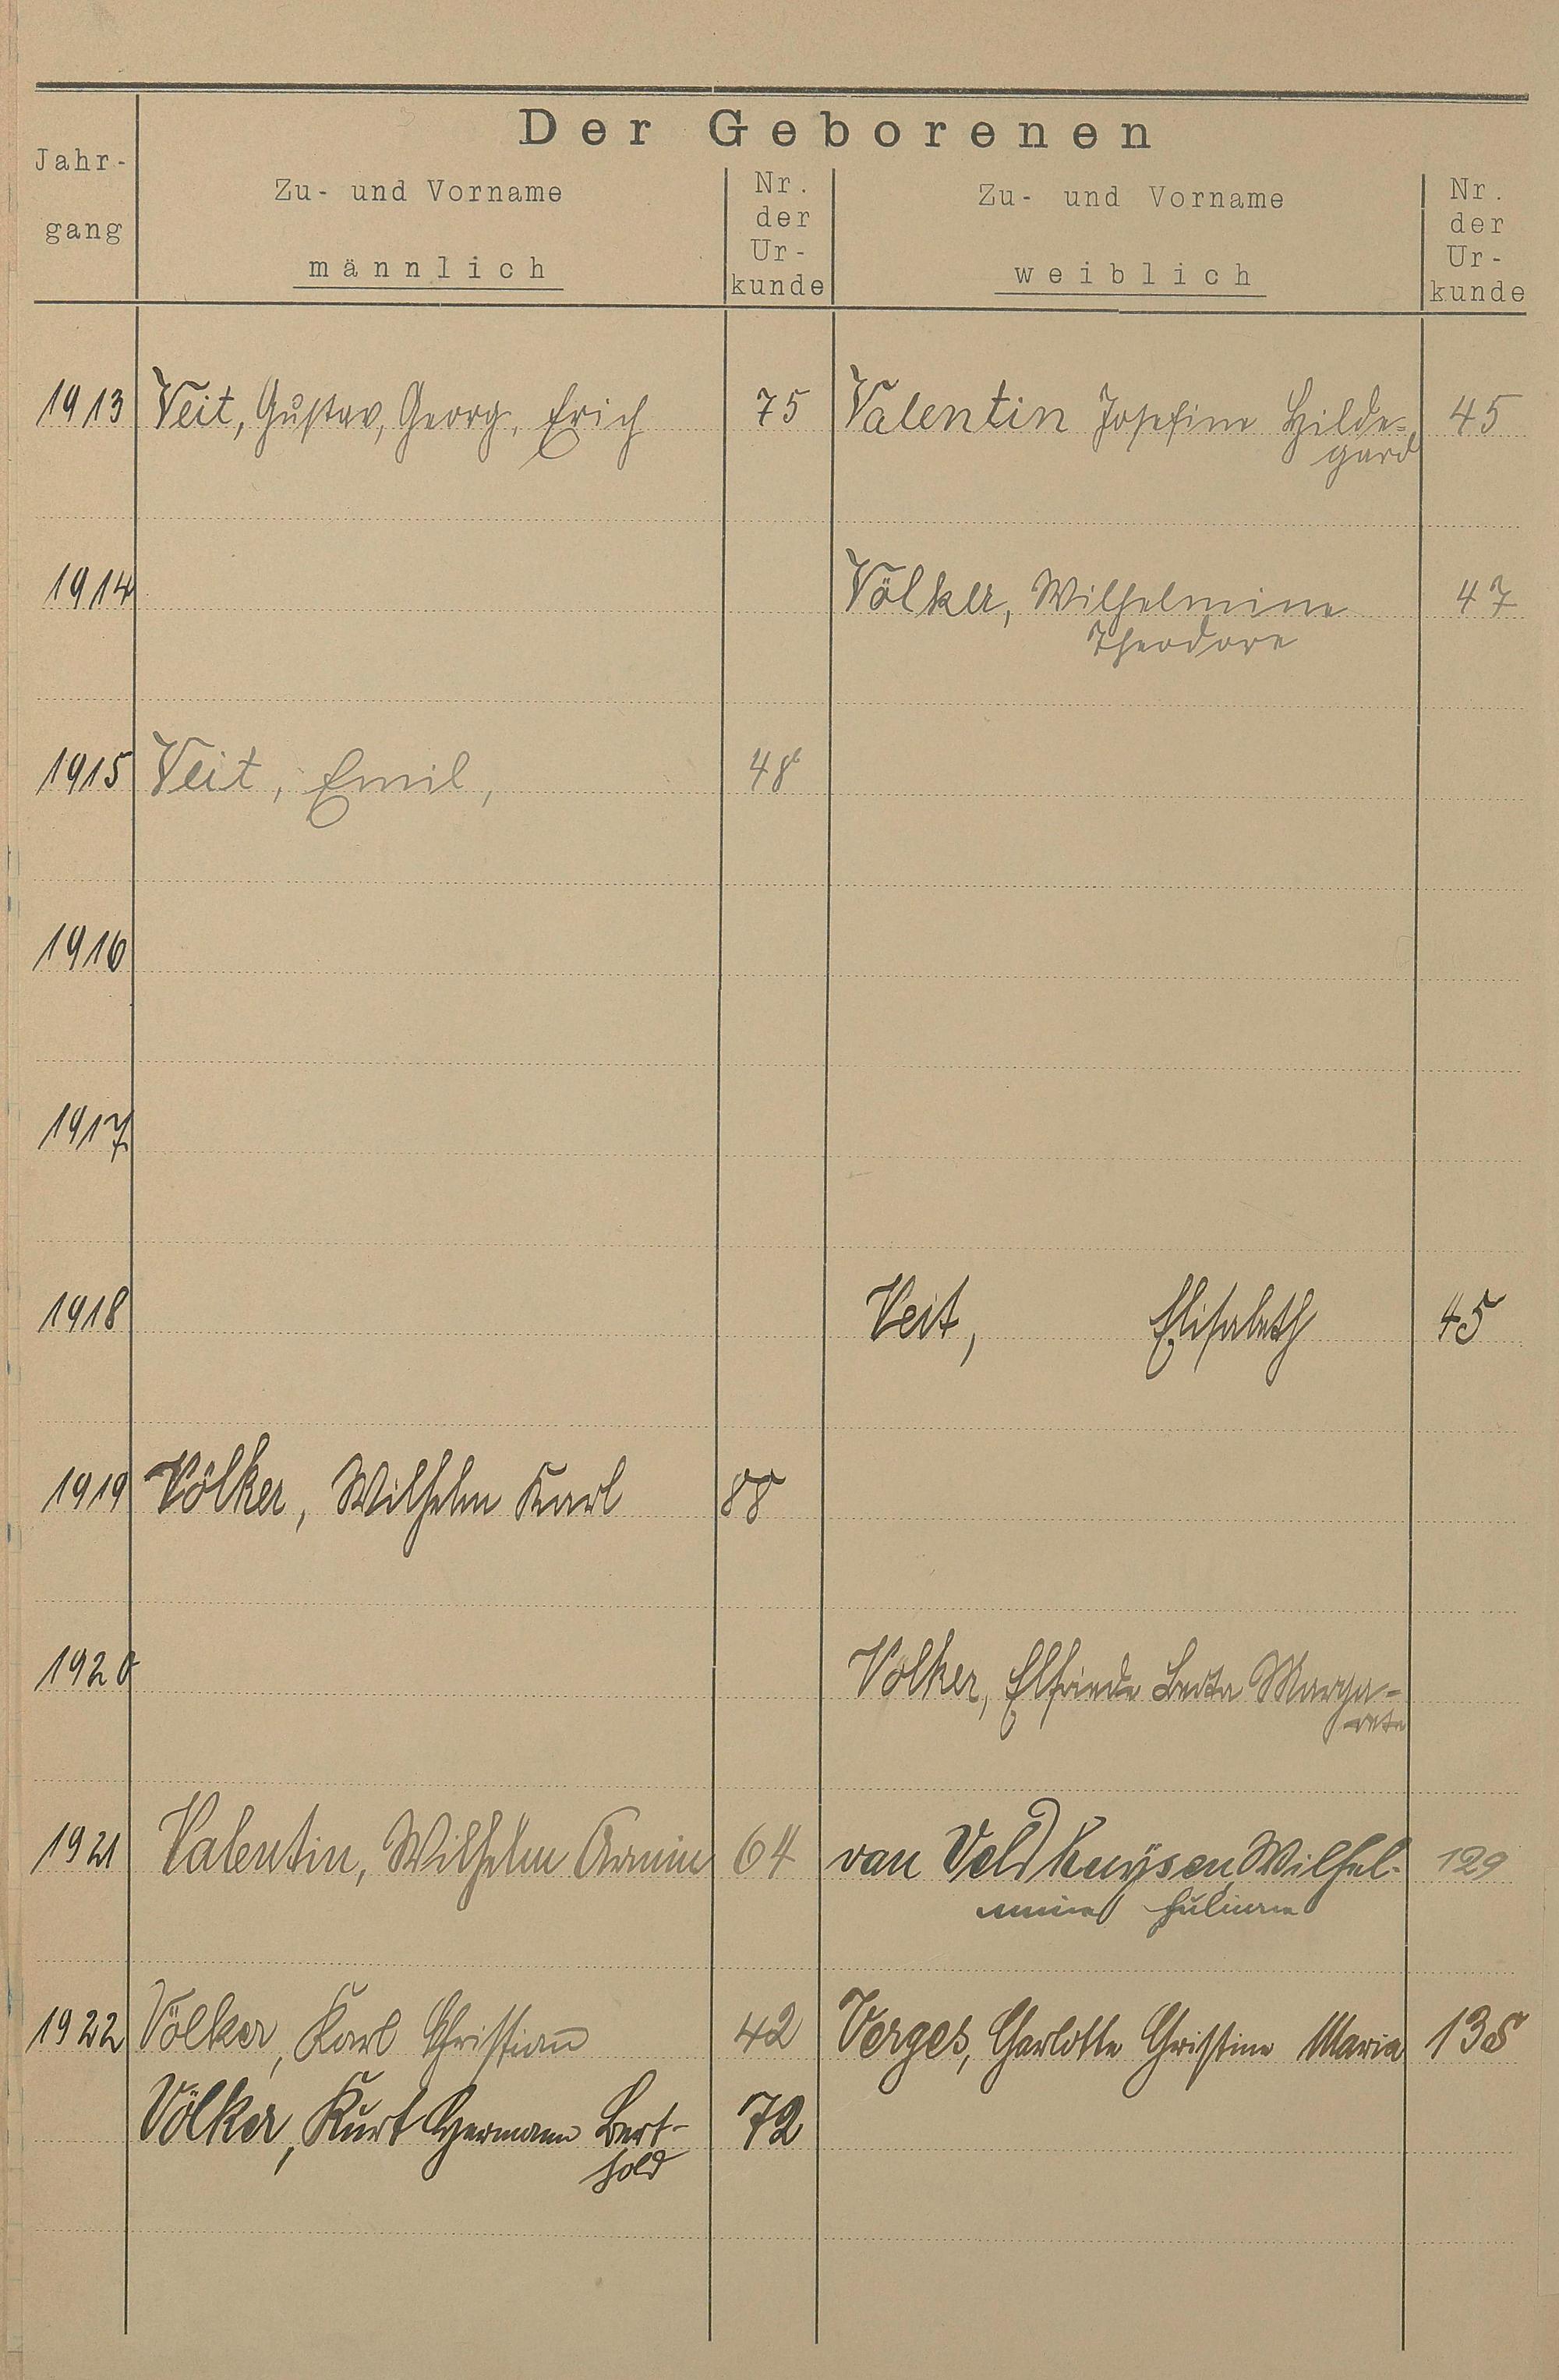 Der Geborenen
Jahr-
gang
Zu- und Vorname
männlich
Nr.
der
Ur-
kunde
Zu- und Vorname
weiblich
Nr.
der
Ur-
kunde
1913 Veit, Gustav, Georg, Erich 75 Valentin Josefine Hilde= 45
gard
1914 Völker, Wilhelmine 47
Theodore
1915 Veit, Emil, 48
1916
1917
1918 Veit, Elisabeth 45
1919 Völker, Wilhelm Karl 88
1920 Volker, Elfriede Berta Marga-
rete
1921 Valentin, Wilhelm Armin 64 van Veldhuysen, Wilhel- 129
mine
1922 Völker, Karl Christian 42 Verges, Charlotte Christine Maria 138
Völker, Kurt Hermann Bert- 72
hold